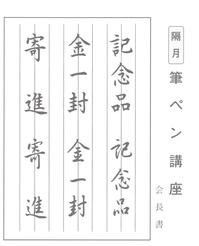 隔月
筆ペン講座
会長書
記念品 記念品
金一封 金一封
寄進 寄進